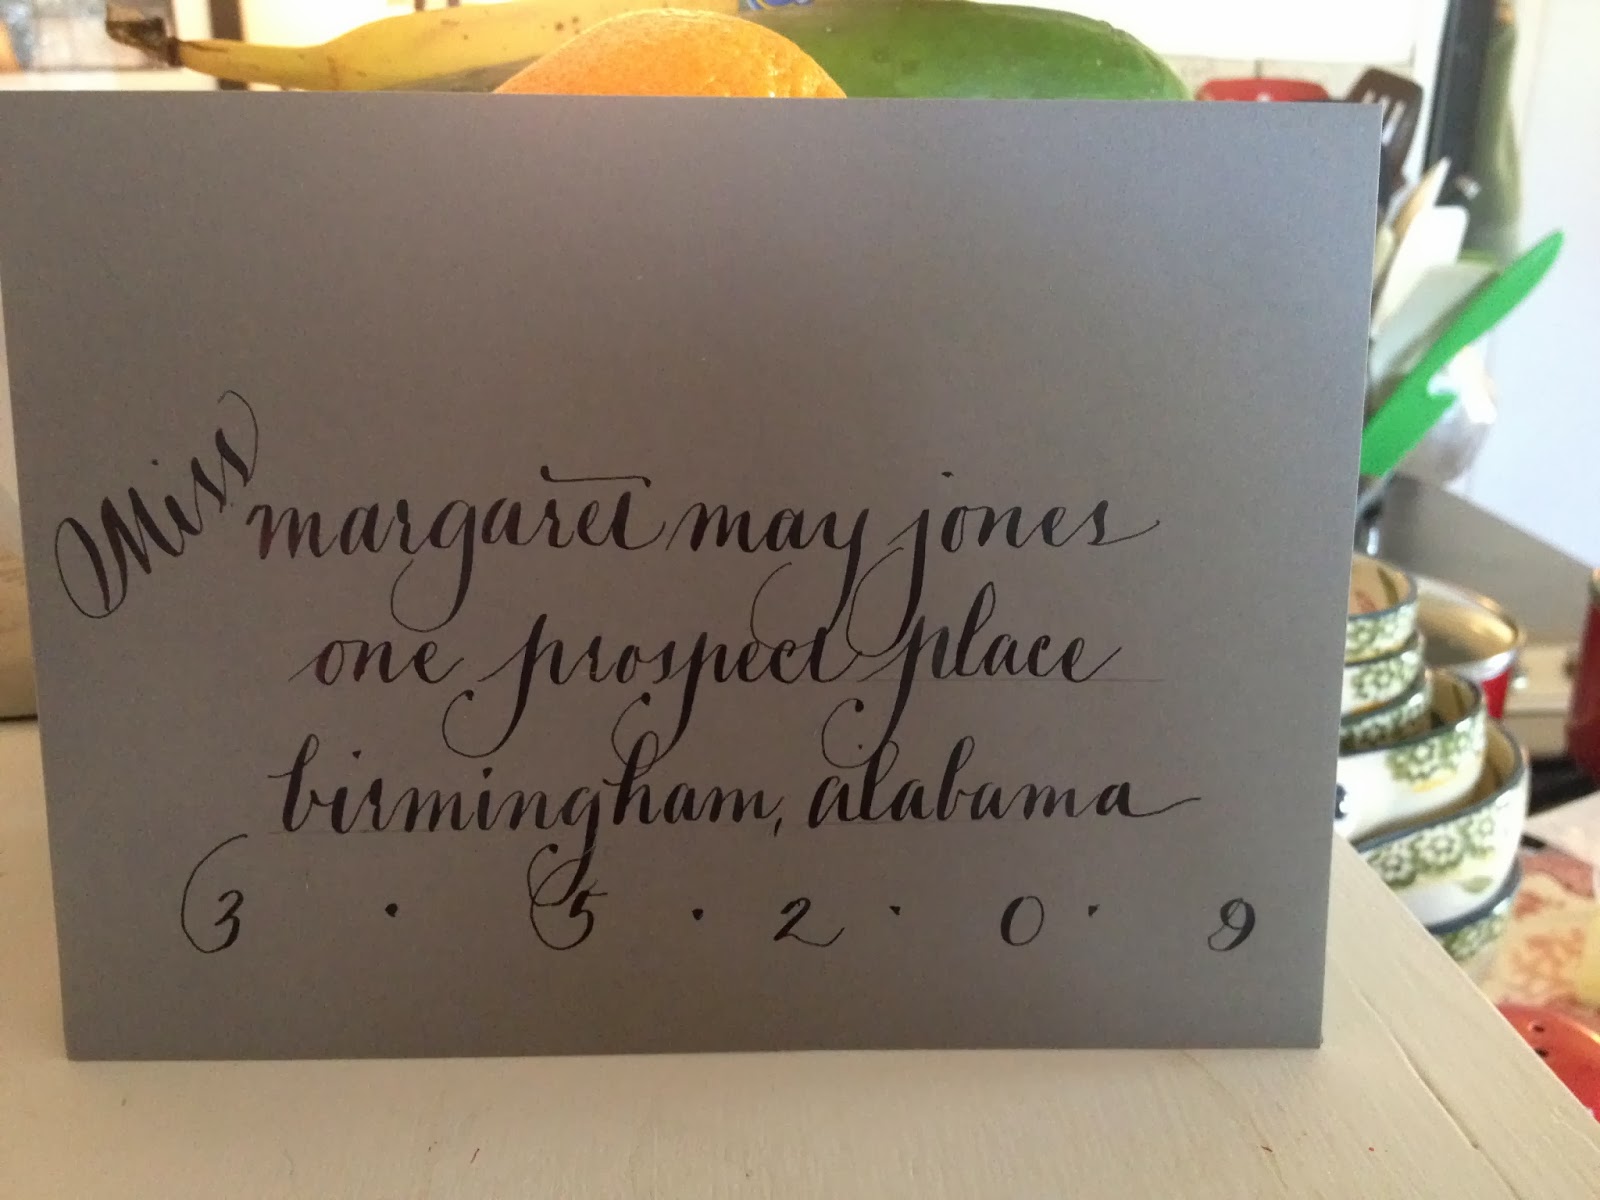 Miss margaret may jones
one prospect place
birmingham, alabama
3 · 5 · 2 · 0 · 9